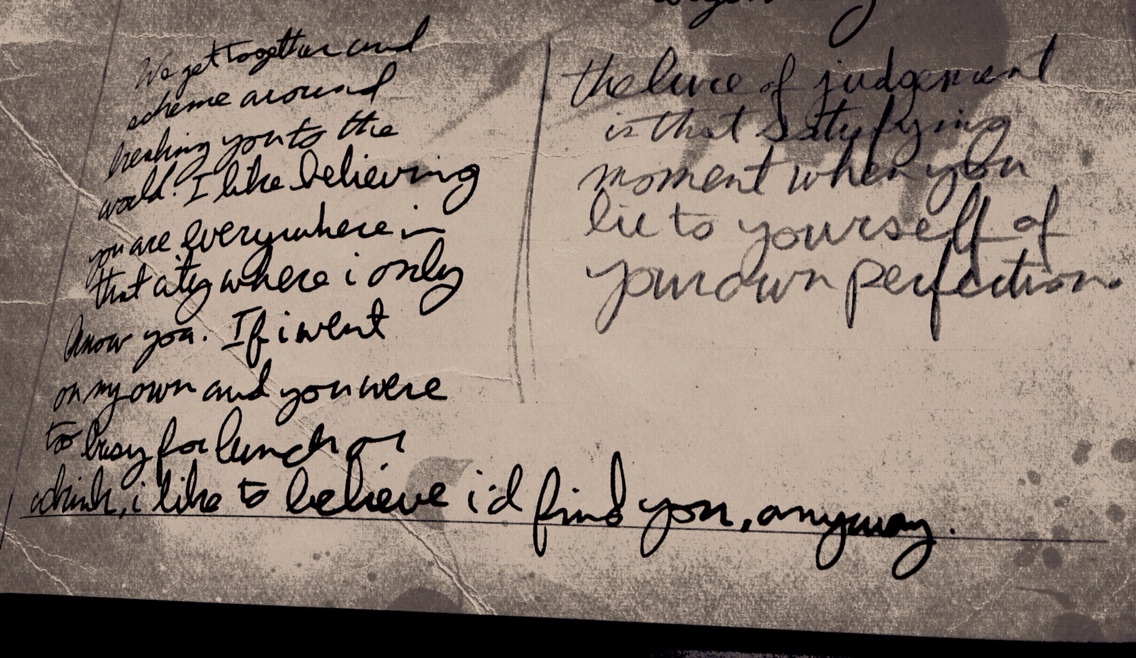 We get together and
scheme around
breaking you to the
world. I like believing
you are everywhere in
that city where i only
know you. If i went
on my own and you were
too busy for lunch or
a drink, i like to believe i'd find you, anyway.
the lure of judgement
is that satisfying
moment when you
lie to yourself of
your own perfection.